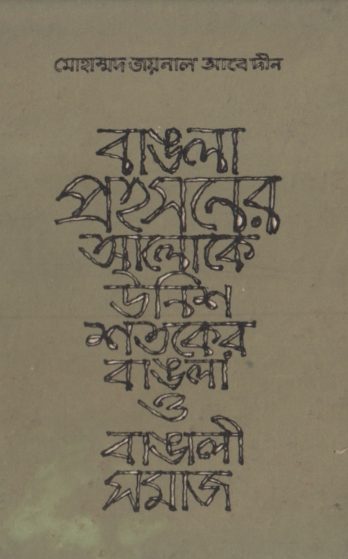 মোহাম্মদ জয়নাল আবেদীন
বাঙলা
প্রহসনের
আলোকে
উনিশ
শতকের
বাঙলা
ও
বাঙালী
সমাজ